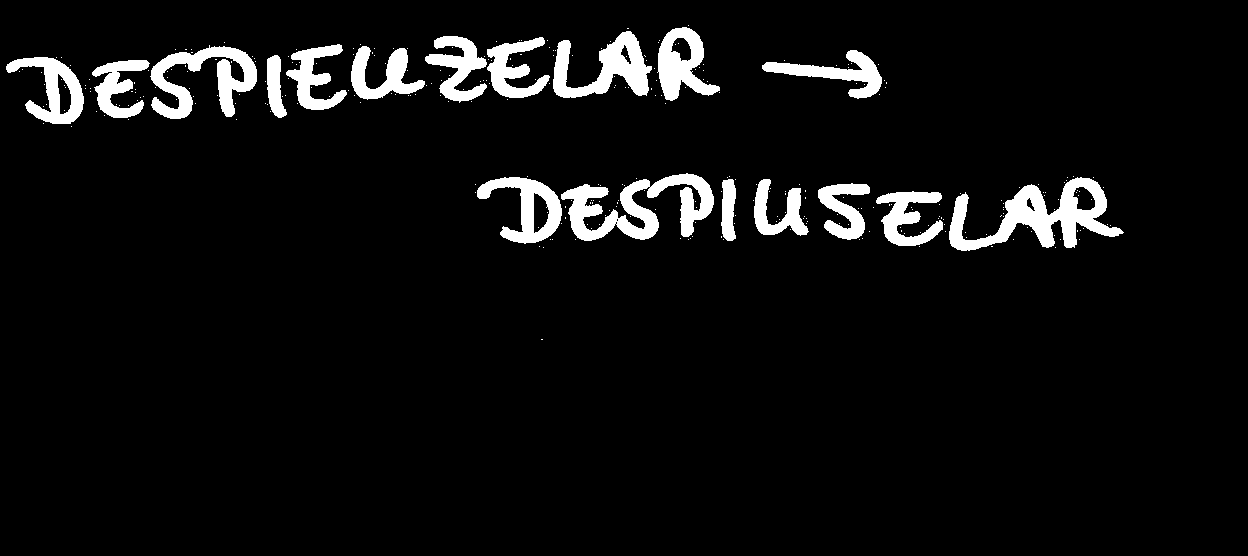 DESPIEUZELAR →
DESPIUSELAR